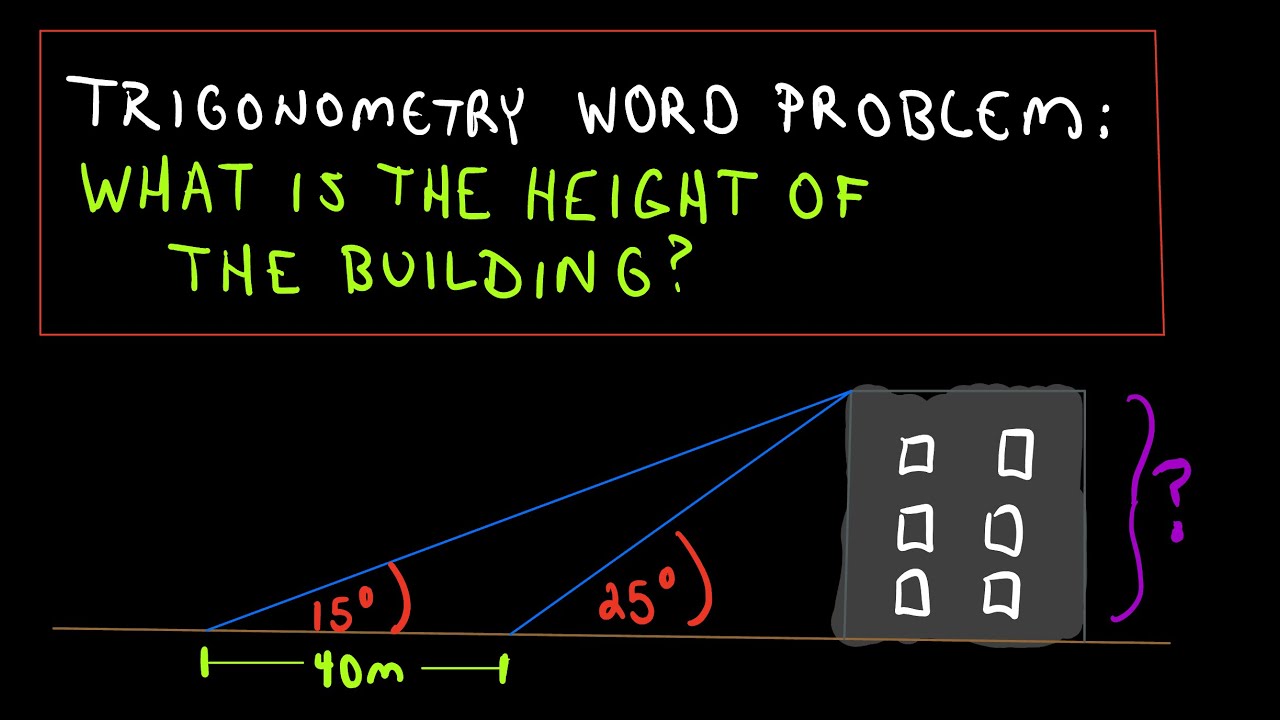 TRIGONOMETRY WORD PROBLEM:
WHAT IS THE HEIGHT OF
THE BUILDING?
?
15°
25°
40m